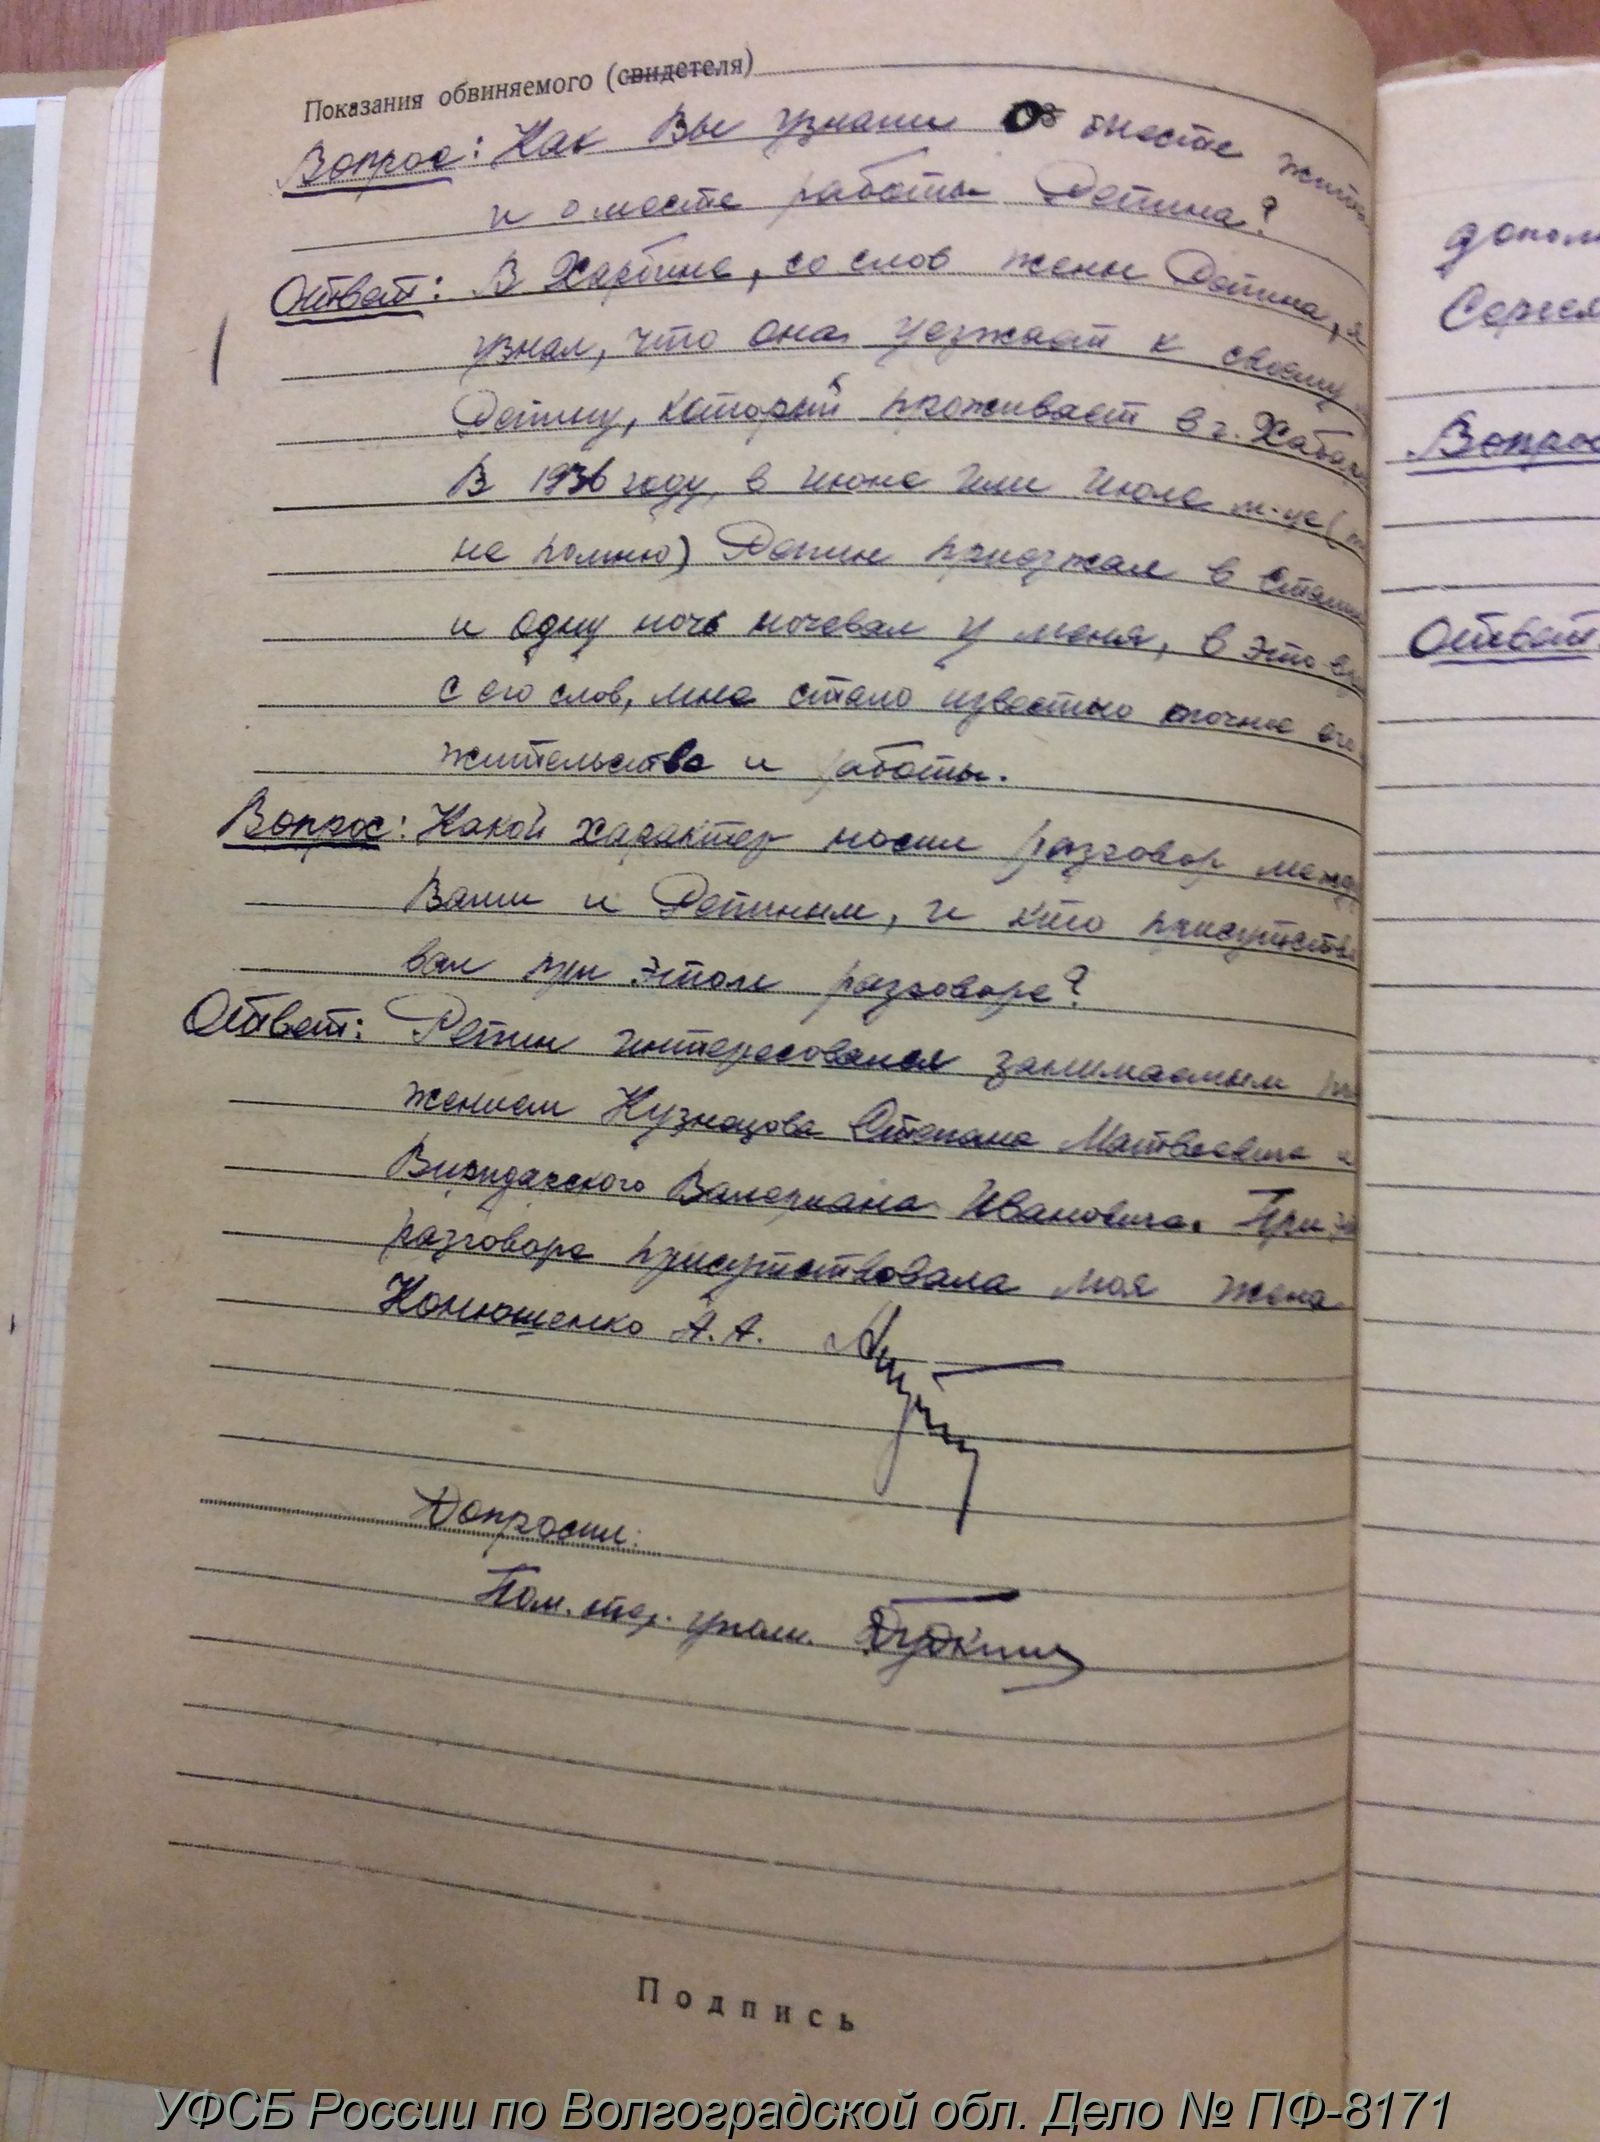 Показания обвиняемого (свидетеля)
Вопрос: Как Вы узнали о месте житель
и о месте работы Репина?
Ответ: В Харбине, со слов жены Репина, я
узнал, что она уезжает к своему
Репину, который проживает в г. Хабар
В 1936 году, в июне или июле м-це (
не помню) Репин приезжал в Сталин
и одну ночь ночевал у меня, в это вр
с его слов, мне стало известно точное его
жительство и работы.
Вопрос: Какой характер носил разговор между
Вами и Репиным, и кто присутство
вал при этом разговоре?
Ответ: Репин интересовался занимаемым по
жением Кузнецова Степана Матвеевича и
Валериана Ивановича. При э
разговоре присутствовала моя жена
Конюшенко А.А.
Допросил:
Пом. опер. уполн.
Подпись
допол
Сергея
Вопрос
Ответ
УФСБ России по Волгоградской обл. Дело № ПФ-8171